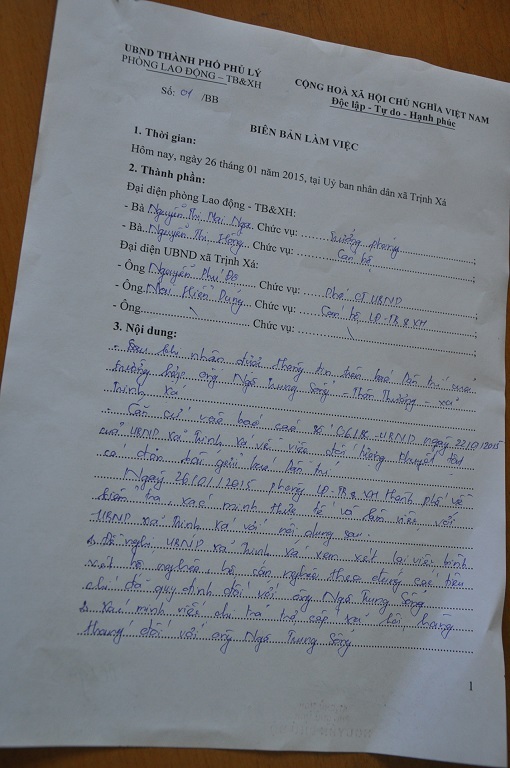 UBND THÀNH PHỐ PHỦ LÝ
PHÒNG LAO ĐỘNG – TB&XH
Số: 01 /BB
CỘNG HOÀ XÃ HỘI CHỦ NGHĨA VIỆT NAM
Độc lập - Tự do - Hạnh phúc
BIÊN BẢN LÀM VIỆC
1. Thời gian:
Hôm nay, ngày 26 tháng 01 năm 2015, tại Uỷ ban nhân dân xã Trịnh Xá
2. Thành phần:
Đại diện phòng Lao động - TB&XH:
- Bà Nguyễn Thị Mai Nga. Chức vụ: Trưởng phòng;
- Bà. Nguyễn Thị Hồng. Chức vụ: Cán bộ;
Đại diện UBND xã Trịnh Xá:
- Ông Nguyễn Phú Đô Chức vụ: Phó CT UBND;
- Ông. Mai Hiến Dũng. Chức vụ: Cán bộ LĐ-TB & XH
- Ông. Chức vụ:
3. Nội dung:
- Sau khi nhận được thông tin trên báo Dân trí với
trường hợp ông Ngô Trung Sống - Thôn Thượng - xã
Trịnh Xá
- Căn cứ vào báo cáo số UBND ngày 22/01/2015
của UBND xã Trịnh Xá về việc đối tượng khuyết tật
báo Dân trí.
Ngày 26/01/2015 phòng LĐ-TB & XH thành phố về
kiểm tra, xác minh thực tế và làm việc với
UBND xã Trịnh Xá với nội dung sau:
Đề nghị UBND xã Trịnh Xá xem xét lại việc bình
xét hộ nghèo, hộ cận nghèo theo đúng các tiêu
chí đã quy định đối với ông Ngô Trung Sống
Xác minh việc chi trả trợ cấp xã hội hàng
tháng đối với ông Ngô Trung Sống
1